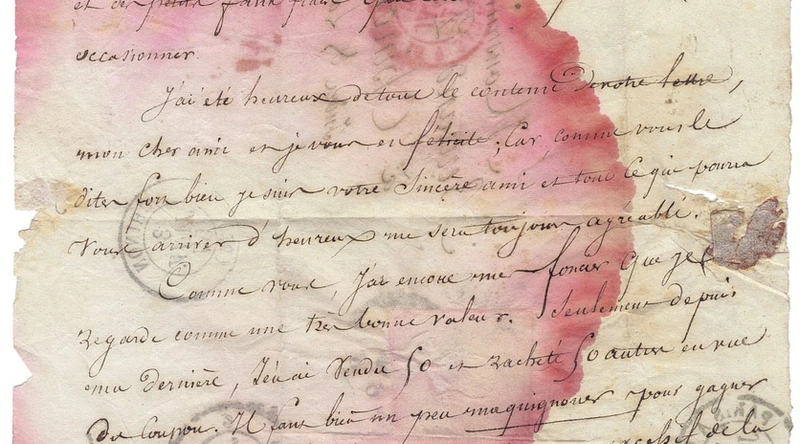 et ces petits faux frais
occasionner.
J'ai été heureux de tout le contenu de votre lettre,
mon cher ami et je vous en félicite; Car, comme vous le
dites fort bien je suis votre Sincère ami et tout ce que pourra
Vous arriver d'heureux me sera toujours agréable.
Comme vous, J'ai encore me foncier que je
regarde comme une très bonne valeur. Seulement depuis
ma dernière, J'en ai Vendu 50 et racheté 50 autres en vue
du Coupon. Il faut bien un peu maquignonner pour gagner
de la